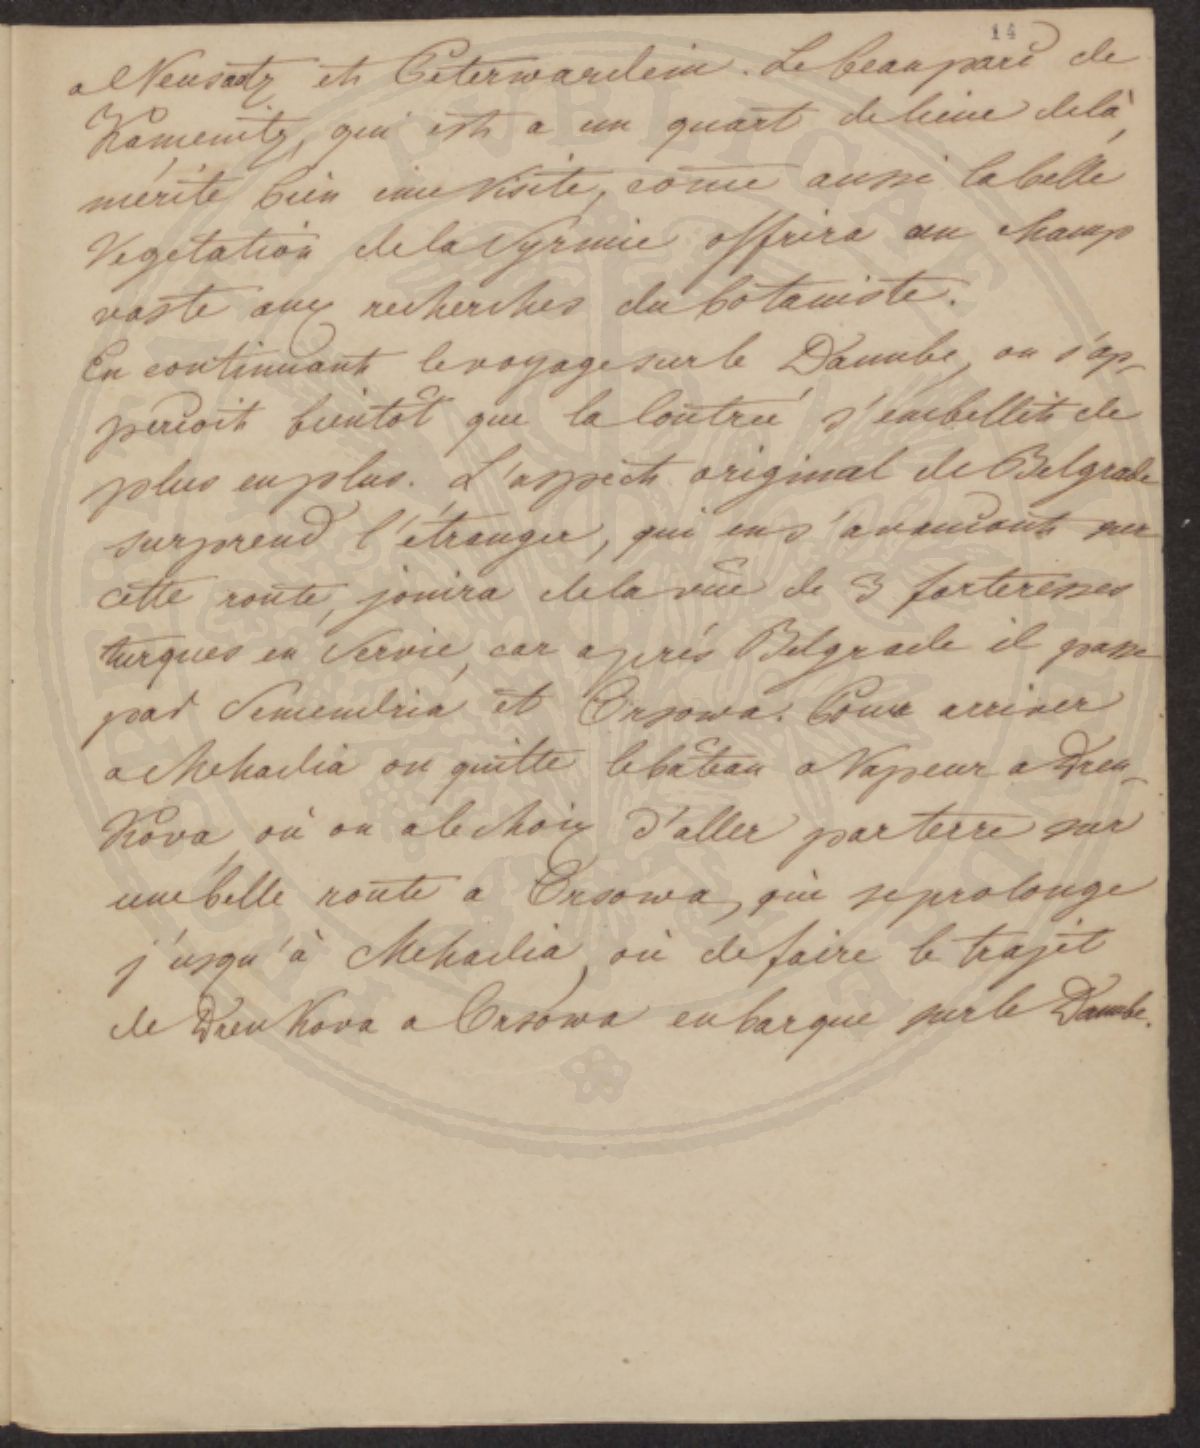 14
a Neusatz et Peterwardein. Le beau parc de
Kamenitz, qui est a un quart de lieue delà,
mérite bien une Visite, come aussi la belle
Vegetation de la Syrmie offrira un champ
vaste aux recherches du botaniste.
En continuant le voyage sur le Danube, on s'ap-
perçoit bientôt que la Contrée s'embellit de
plus en plus. L'aspect original de Belgrade
surprend l'étranger, qui en s'avancant sur
cette route, jouira de la vue de 3 forteresses
turques en Servie, car aprés Belgrade il passe
par Semendria et Orsowa. Pour arriver
a Mehadia on quitte le bâteau a Vapeur a Dren-
Kova, où on a le choix d'aller par terre sur
une belle route a Orsowa, qui se prolonge
j'usqu'à Mehadia, où de faire le trajet
de DrenKova a Orsowa en barque sur le Danube.